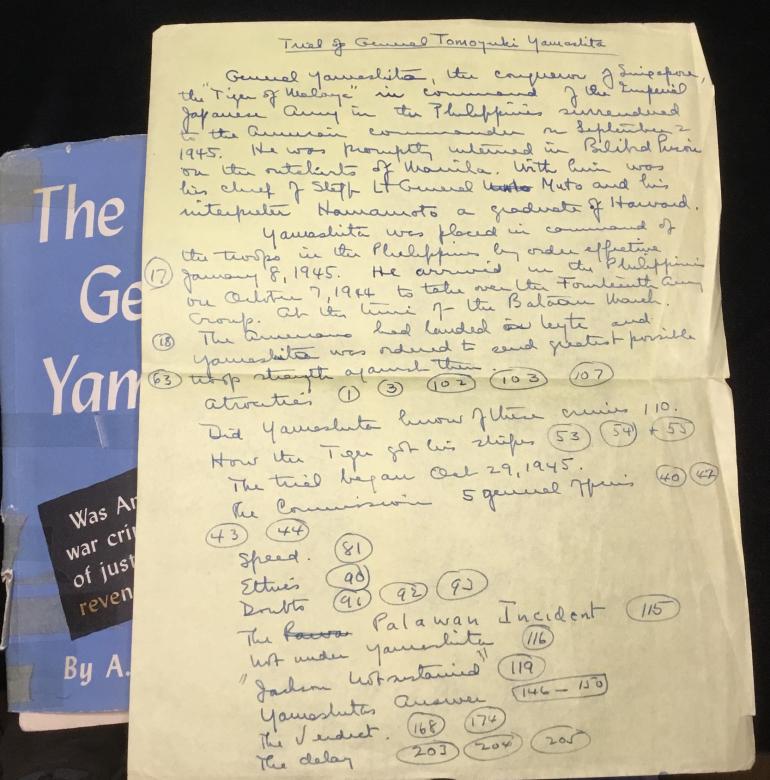 The
Ge
Yam
Was Am
war crim
of just
reven
By A.
Trial of General Tomoyuki Yamashita
General Yamashita, the conqueror of Singapore,
the "Tiger of Malaya" in command of the Imperial
Japanese Army in the Philippines surrendered
to the American commander on September 2
1945. He was promptly interned in Bilibid Prison
on the outskirts of Manila. With him was
his chief of Staff Lt General Muto and his
interpreter Hamamoto a graduate of Harvard.
Yamashita was placed in command of
the troops in the Philippines by order effective
(17) January 8, 1945. He arrived in the Philippines
on October 7, 1944 to take over the Fourteenth Army
Group. At the time of the Bataan March.
(18) The Americans had landed on Leyte and
Yamashita was ordered to send greatest possible
(63) troop strength against them.
Atrocities (1) (3) (102) (103) (107)
Did Yamashita know of these crimes 110.
How the Tiger got his stripes (53) (54) + (55)
The trial began Oct 29, 1945.
The Commission 5 general officers (40) (42)
(43) (44)
Speed. (81)
Ethics (90)
Doubts (91) (92) (93)
The Palawan Incident (115)
Not under Yamashita (116)
"Jackson Not sustained" (119)
Yamashitas Answer (146 - 150)
The Verdict. (168) (174)
The delay (203) (204) (205)